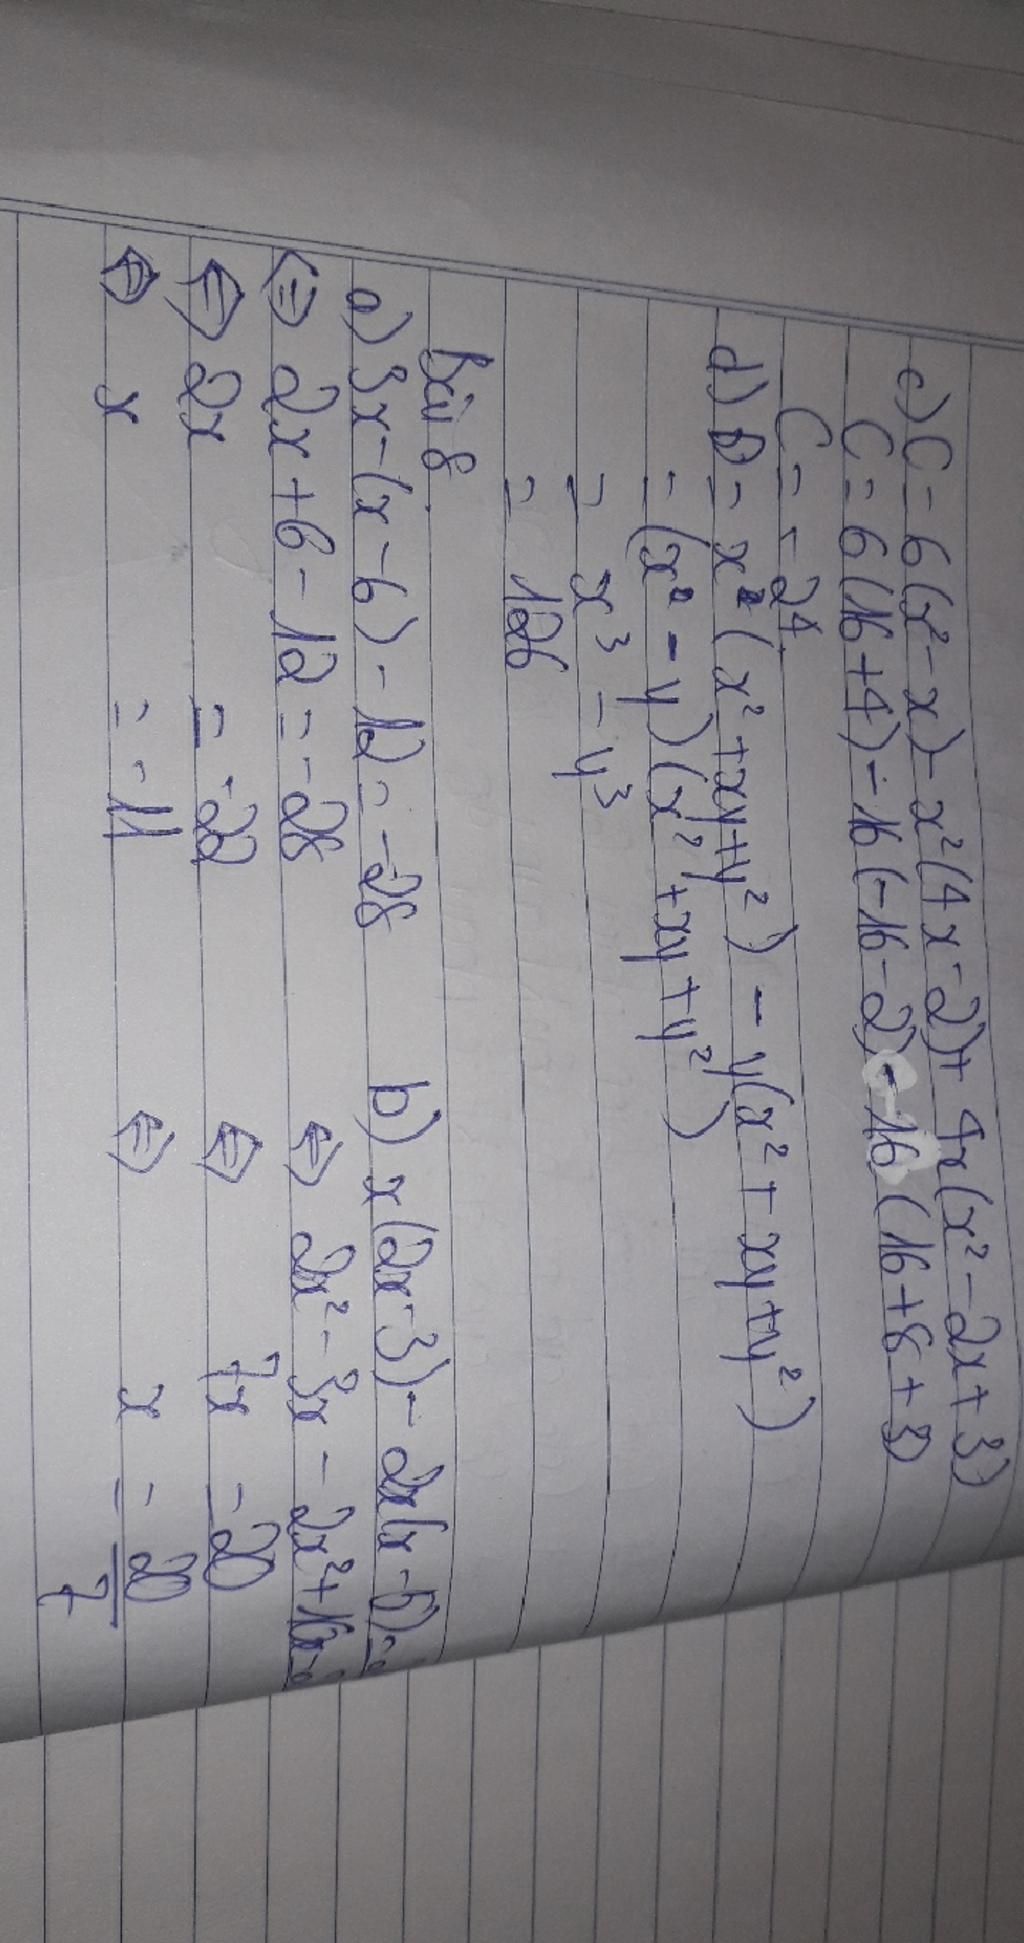 c) C = 6(x² - x) - x²(4x - 2) + 4x(x² - 2x + 3)
C = 6(16 + 4) - 16(-16 - 2) - 16(16 + 8 + 3)
C = -24
d) D = x²(x² + xy + y²) - y(x² + xy + y²)
= (x² - y)(x² + xy + y²)
= x³ - y³
= 126
Bài 8
a) 3x - (x - 6) - 12 = -28 b) x(2x - 3) - 2x(x - 5) =
⇔ 2x + 6 - 12 = -28 ⇔ 2x² - 3x - 2x² + 10x =
⇔ 2x = -22 ⇔ 7x = 20
⇔ x = -11 ⇔ x = 20/7